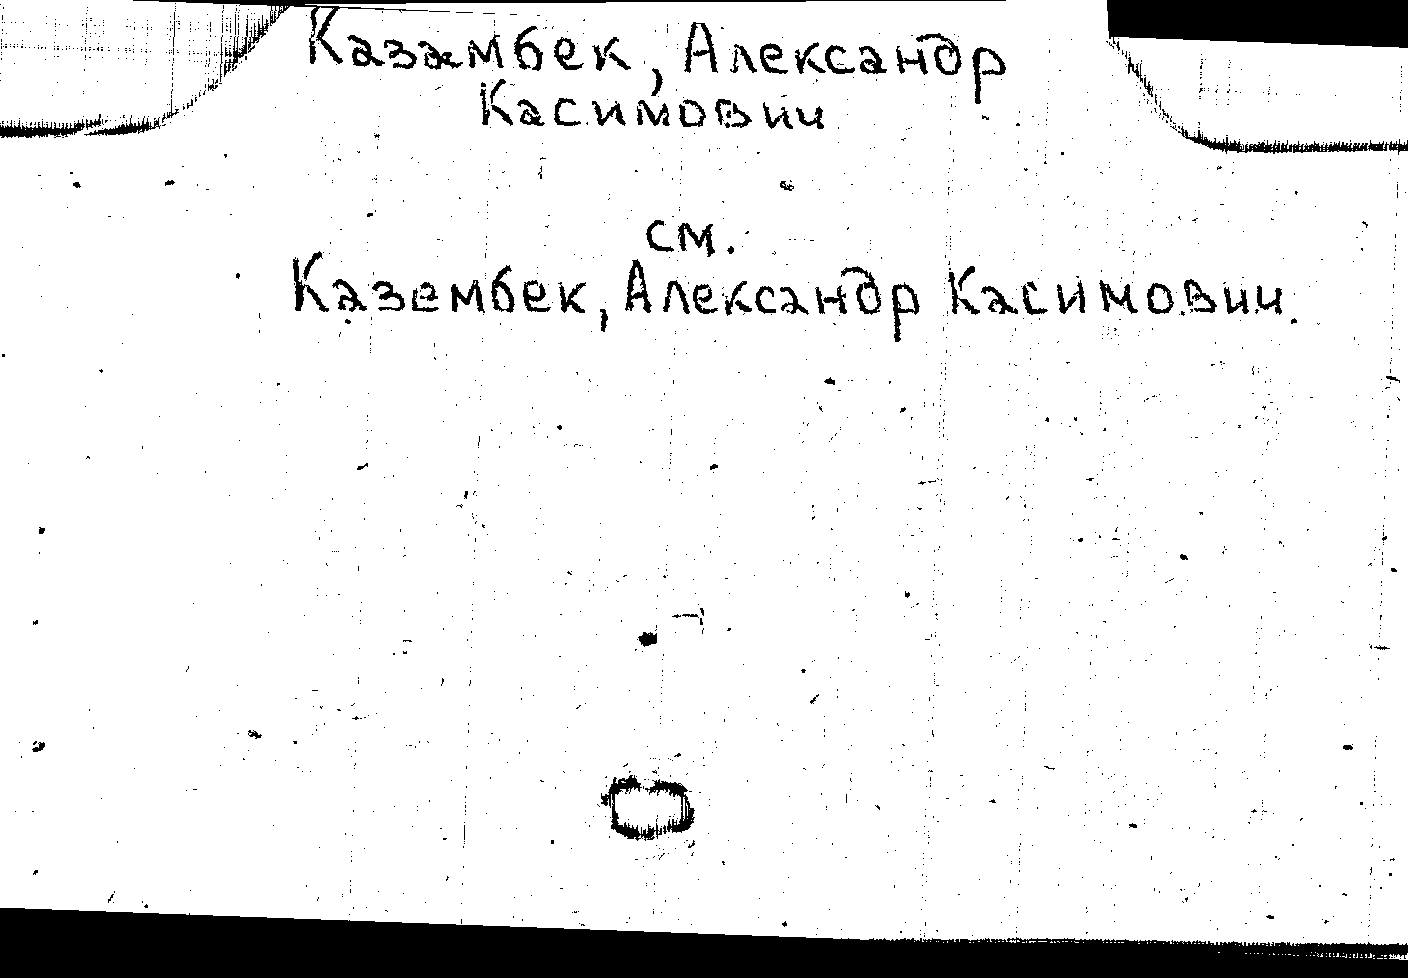 Казамбек, Александр
Касимович
см.
Казембек, Александр Касимович.